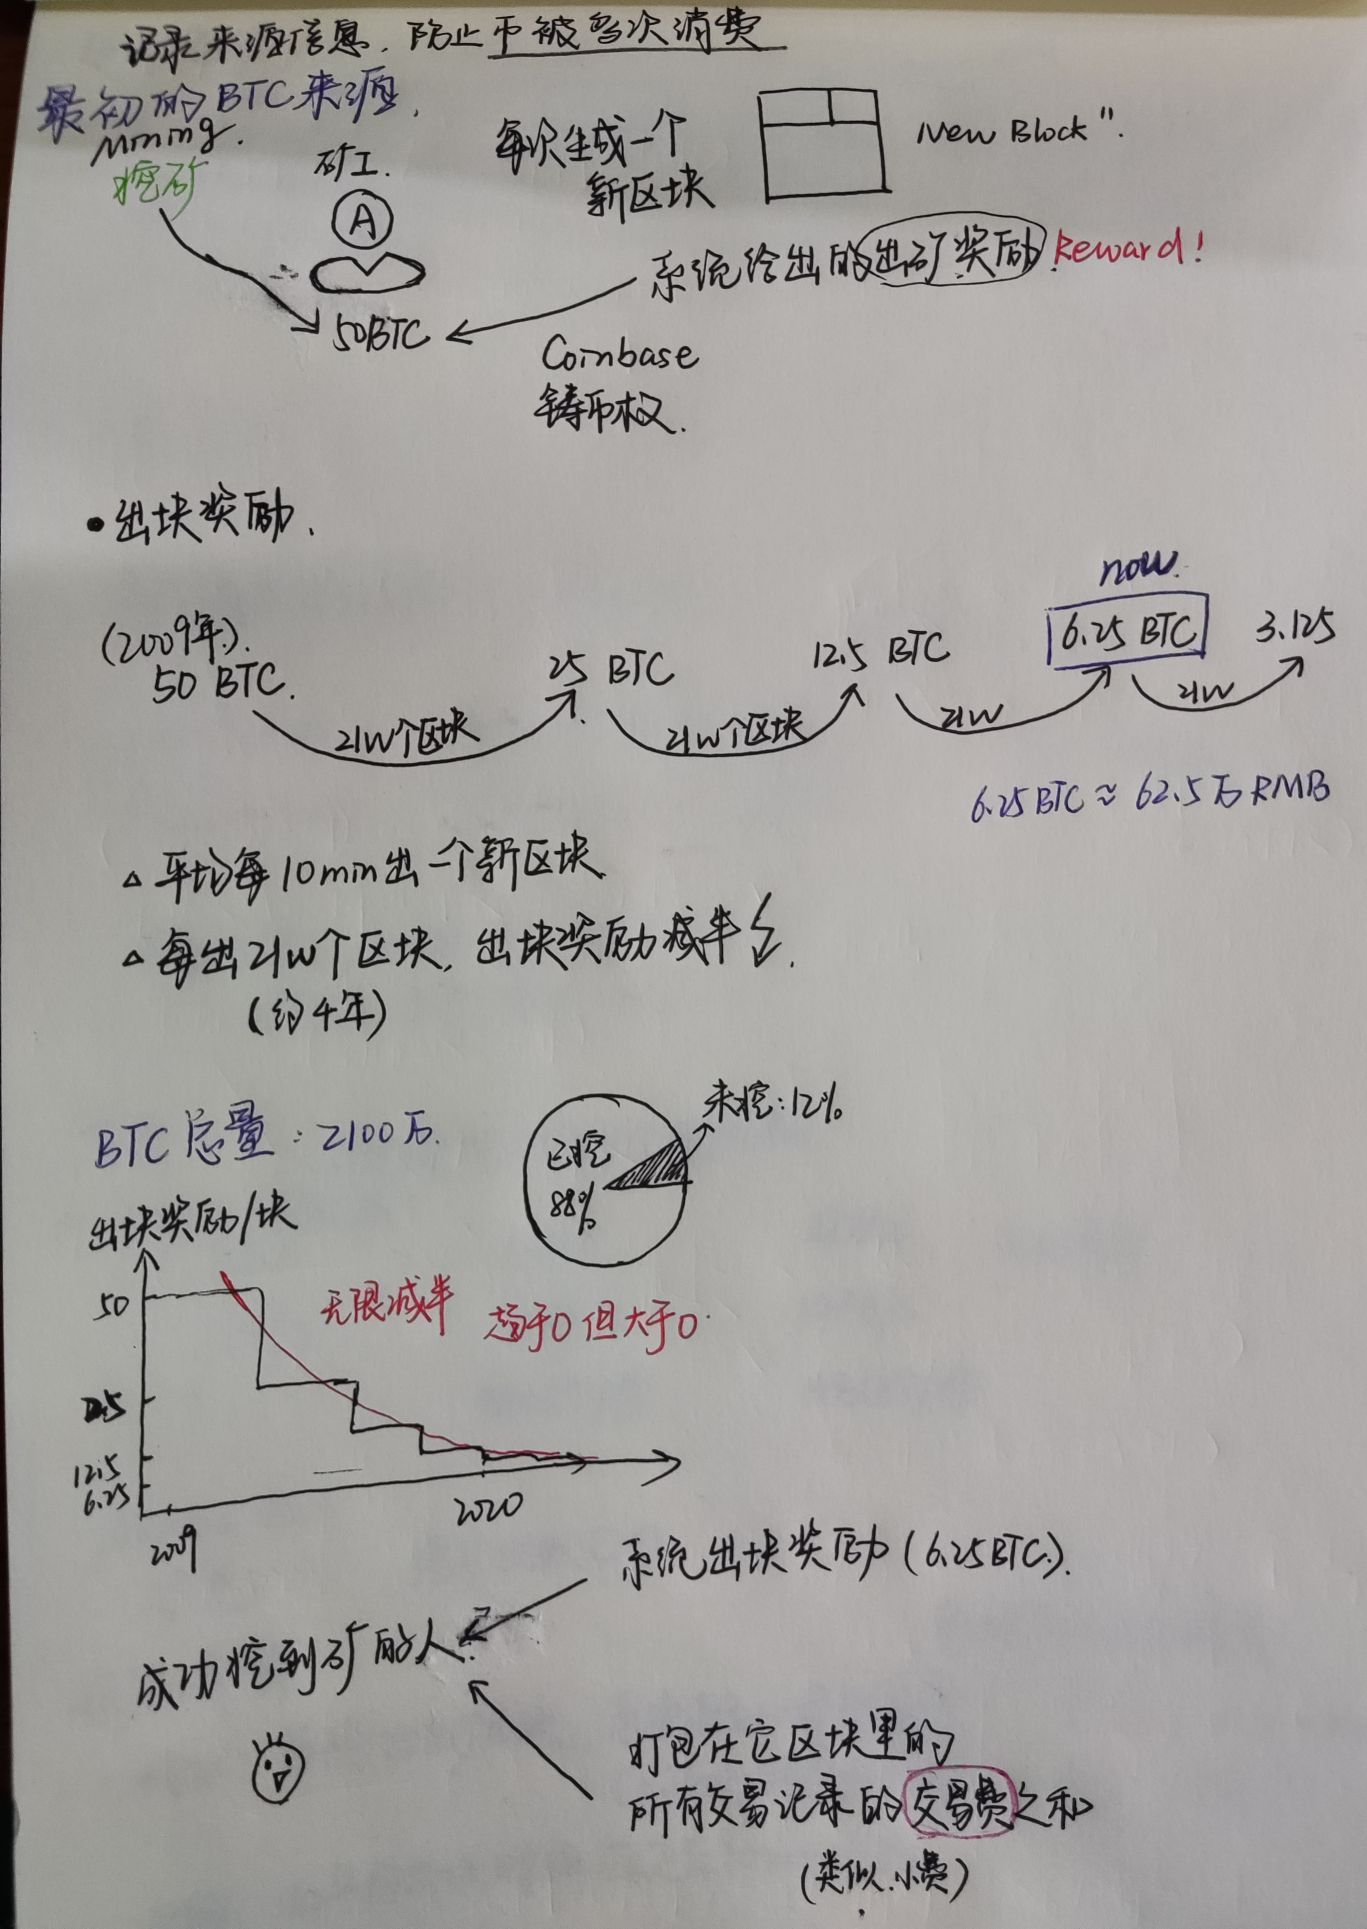 记录来源信息，防止币被多次消费
最初的BTC来源，
Mining.
挖矿
矿工.
A
50BTC
每次生成一个
新区块
New Block".
系统给出的出矿奖励 Reward!
Coinbase
铸币权.
• 出块奖励.
(2009年).
50 BTC.
25 BTC
12.5 BTC
now.
6.25 BTC
3.125
21W个区块
21W个区块
21W
21W
6.25BTC≈62.5万RMB
△ 平均每10min出一个新区块
△ 每出21W个区块, 出块奖励减半.
(约4年)
BTC总量: 2100万.
已挖
88%
未挖: 12%
出块奖励/块
50
25
12.5
6.25
2009
2020
无限减半 趋于0但大于0.
系统出块奖励(6.25BTC).
成功挖到矿的人.
打包在它区块里的
所有交易记录的交易费之和
(类似.小费)